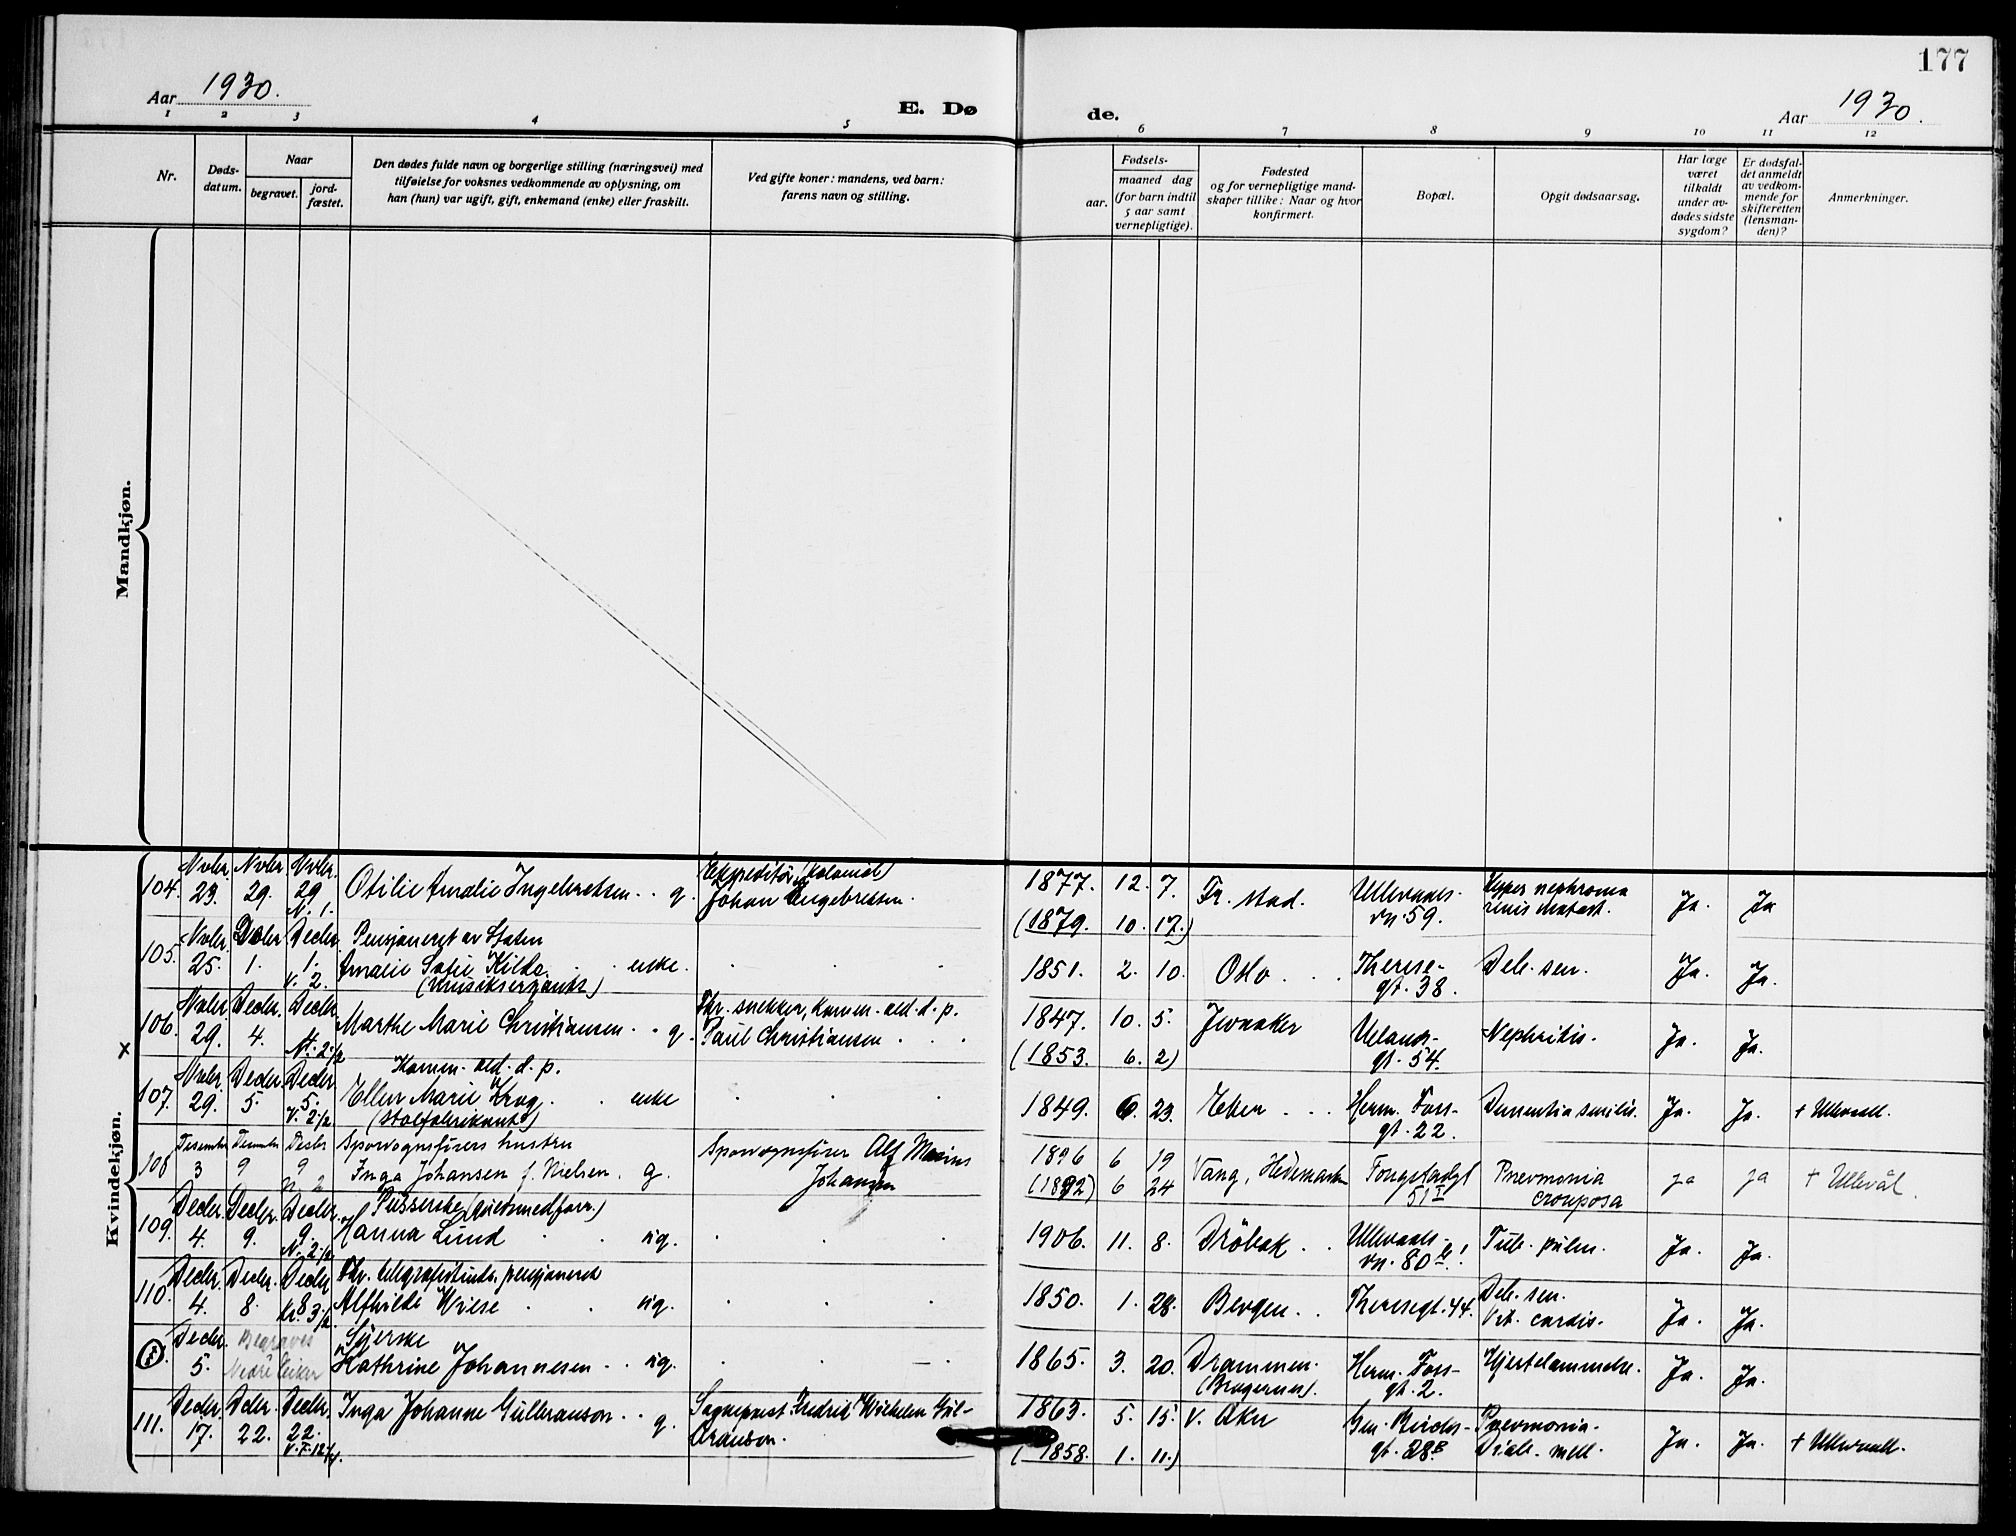 177
Aar 1930.
E. Dø
de.
Aar 1930.
1 2 3 4 5
6 7 8 9 10 11 12
Nr.
Døds-
datum.
Naar
begravet.
jord-
fæstet.
Den dødes fulde navn og borgerlige stilling (næringsvei) med
tilføielse for voksnes vedkommende av oplysning, om
han (hun) var ugift, gift, enkemand (enke) eller fraskilt.
Ved gifte koner: mandens, ved barn:
farens navn og stilling.
Fødsels-
aar.
maaned dag
(for barn indtil
5 aar samt
vernepligtige).
Fødested
og for vernepligtige mand-
skaper tillike: Naar og hvor
konfirmert.
Bopæl.
Opgit dødsaarsag.
Har læge
været
tilkaldt
under av-
dødes sidste
sygdom?
Er dødsfal-
det anmeldt
av vedkom-
mende for
skifteretten
(lensman-
den)?
Anmerkninger.
Mandkjøn.
Kvindekjøn.
104. Nvbr. 23. Nvbr. 29. Nvbr. 29 N. 1.
Otilie Amalie Ingebretsen. g.
Ekspeditør (kolonial)
Johan Engebretsen.
1877. 12. 7.
(1879. 10. 17.)
Fr. stad.
Ullevaals-
vn. 59.
Hypernephroma
renis metast.
Ja. Ja
105. Nvbr. 25. Dcbr. 1. Decbr. 1. V. 2.
Pensjoneret av Staten
Amalie Sofie Kilde. enke.
(Musiksergants)
1851. 2. 10. Oslo
Therese-
gt. 38.
Deb. sen. Ja. Ja.
106. Nvbr. 29. Decbr. 4. Decbr.
Marthe Marie Christiansen. g.
Fhv. snekker, komm. ald. d. p.
Paul Christiansen
1847. 10. 5.
(1853. 6. 2)
Jevnaker
Uelands-
gt. 54.
Nephritis. Ja. Ja.
×
107. Nvbr. 29. Decbr. 5. Decbr. 5. V. 2½
Komm. ald. d. p.
Ellen Marie Krog. enke
(Stolfabrikants)
1849. 6. 23.
Herm. Foss-
gt. 22.
Dementia senilis. Ja. Ja. + Ullevaal.
108 Desember 3 Desember 9 Desbr 9 N 2
Sporvognsførers hustru
Inga Johansen f. Nielsen. g.
Sporvognsfører Alf Marius
Johansen
1896 6 19
(1892) 6 24
Vang, Hedemarken
Fougstadgt
51 I
Pnevmonia
crouposa
ja ja + Ullevål.
109. Decbr. 4. Decbr. 9. Decbr. 9. N. 2½
Pusserske (guldsmedforr.)
Hanna Lund ug.
1906. 11. 8. Drøbak
Ullevaals-
vn. 80
Tub. pulm. Ja. Ja.
110. Decbr. 4. Decbr. 8. Decbr 8 kl. 3½
Fhv. telegrafistinde, pensjoneret
Alfhilde Wiese ug.
1850. 1. 28. Bergen. Theresegt. 44.
Deb. sen.
Vit. cordis.
Ja. Ja.
Decbr. 5. Begraves Nedre Eiker
Syerske
Kathrine Johannesen. ug.
1865. 3. 20.
Drammen.
(Bragernes).
Herm. Foss-
gt. 2.
Hjertelammelse. Ja. Ja.
111. Decbr. 17. Dcbr. 22. Decbr. 22.
Inga Johanne Gulbranson. g.
Sogneprest Fredrik Wilhelm Gul-
branson.
1863. 5. 15.
(1858. 1. 11.)
V. Aker
Gen. Birchs-
gt. 28 B
Pnevmonia.
Diab. mell.
Ja. Ja. + Ullevaal.